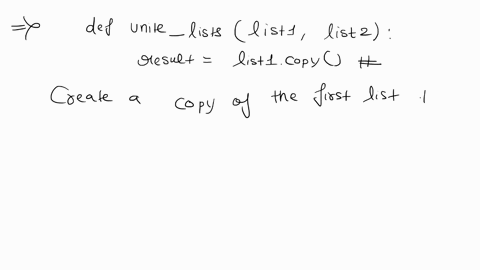 => def unite_lists (list1, list2):
result = list1.copy() #
Create a copy of the first list .